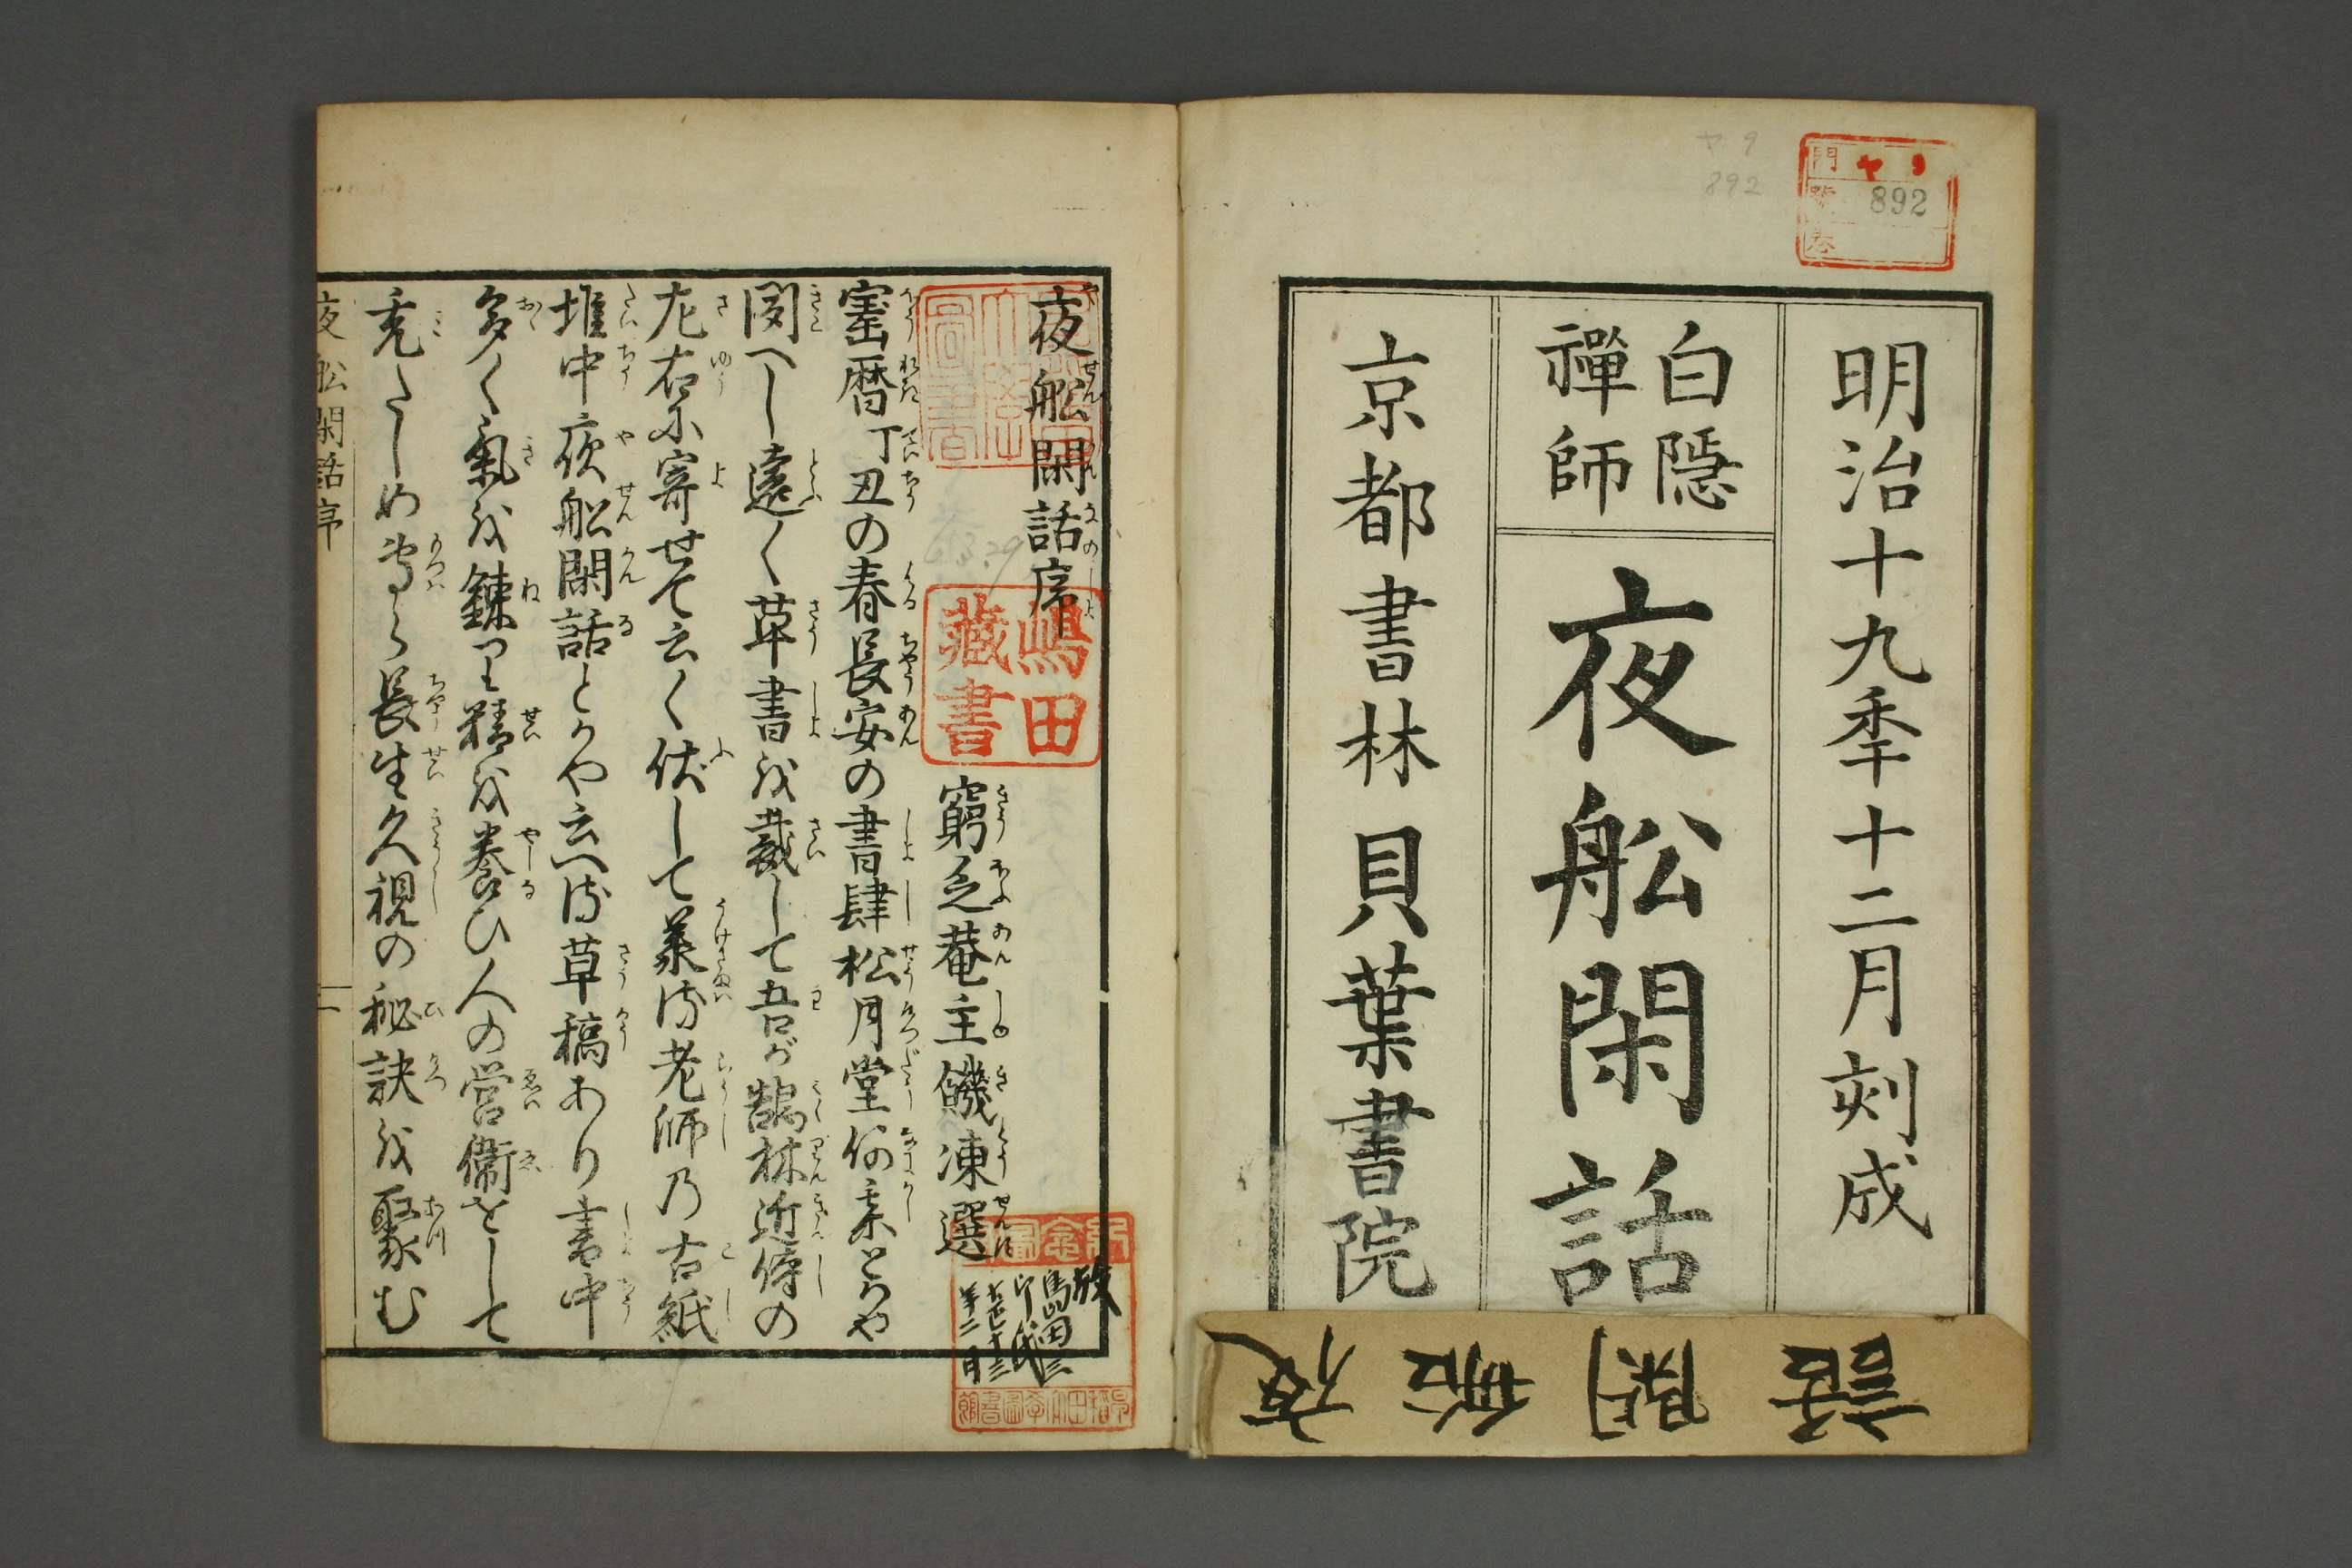 892
ヤ9
892
明治十九季十二月刻成
白隠
禪師
夜舩閑話
京都書林貝葉書院
夜舩閑話
夜舩閑話序
嶋田
藏書
窮乏菴主饑凍選
宝暦丁丑の春長安の書肆松月堂何某とかや
聞へし遠く草書を裁して吾が鵠林近侍の
左右に寄せて云く伏して承る老師乃古紙
堆中夜舩閑話とかや云へる草稿あり書中
多く氣を錬り精を養ひ人の営衞をして
充たしめ専ら長生久視の秘訣を聚む
夜舩閑話序